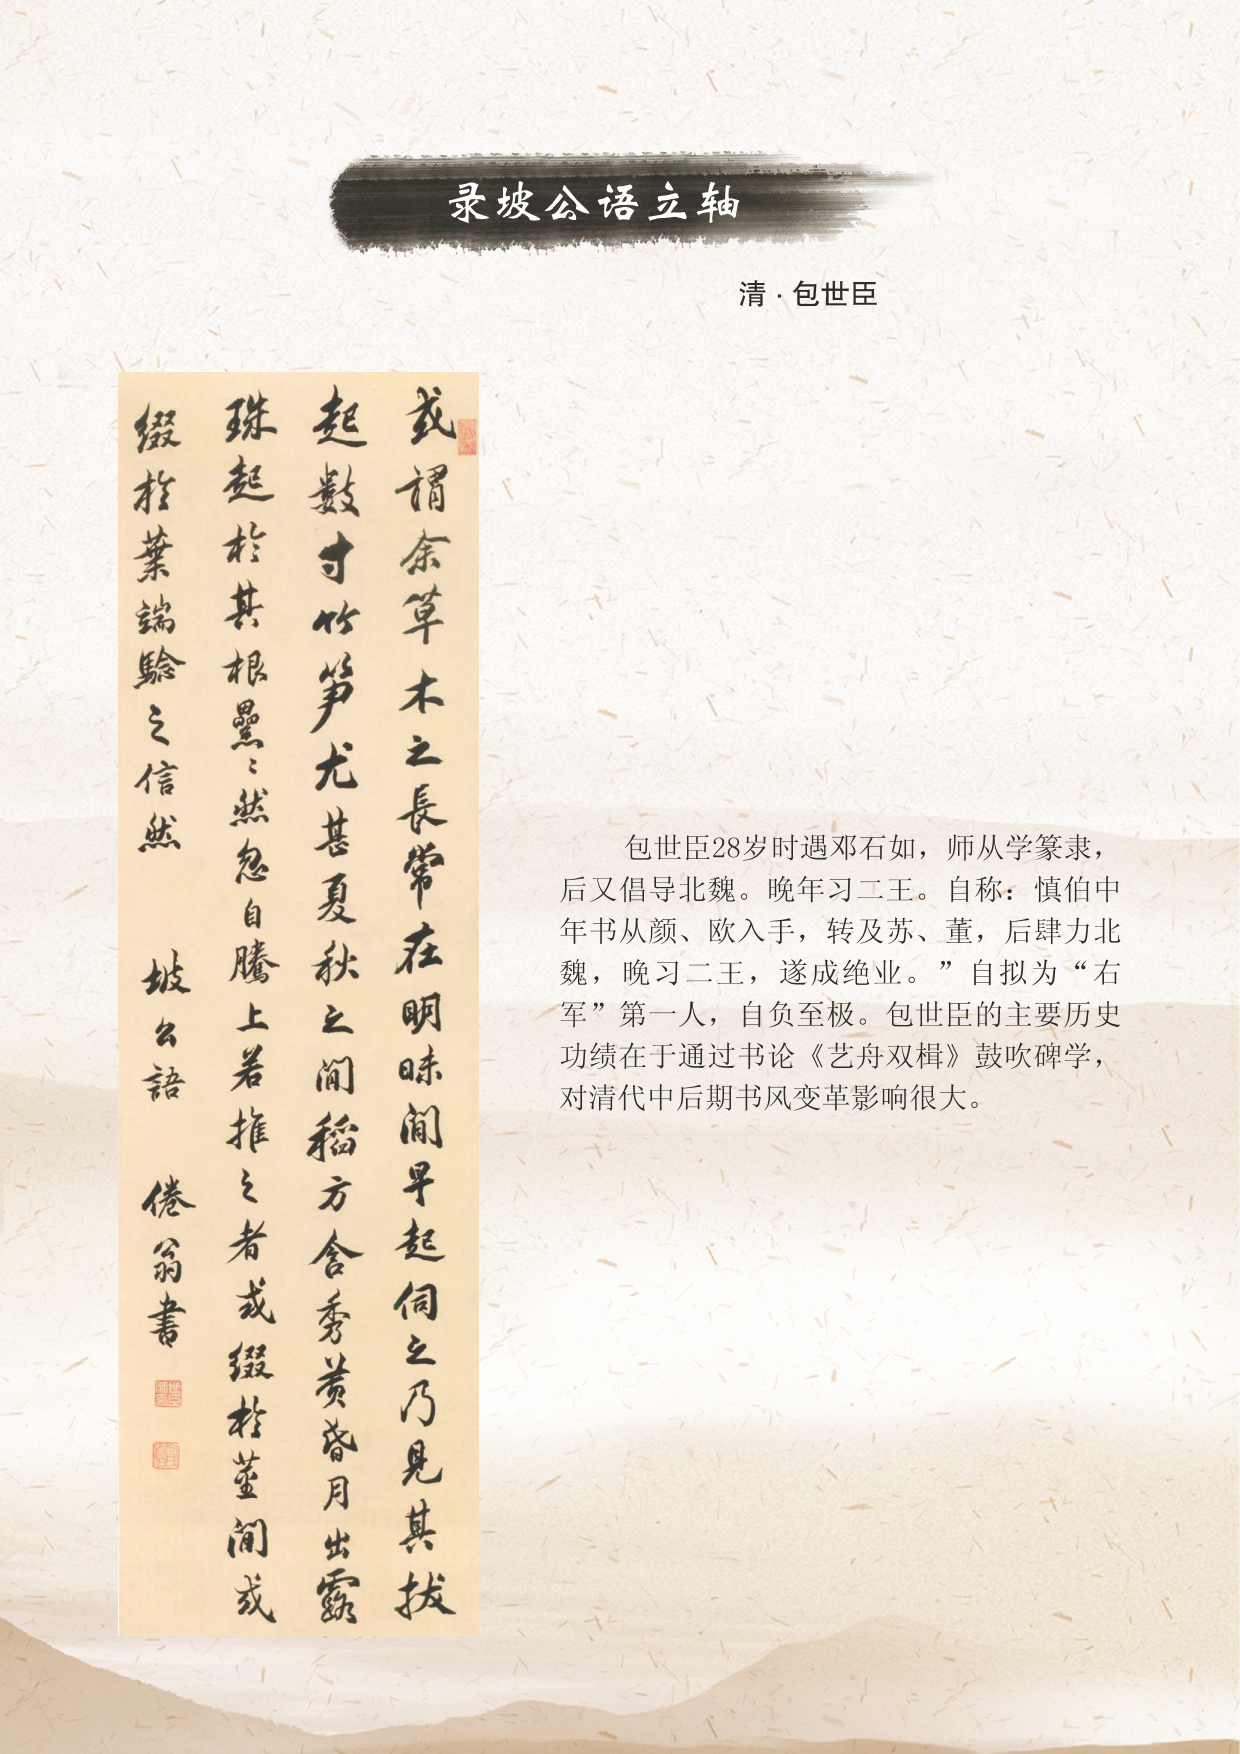 录坡公语立轴
清·包世臣
或謂余草木之長常在明昧間早起伺之乃見其拔
起數寸竹筍尤甚夏秋之間稻方含秀黄昏月出露
珠起於其根纍纍然忽自騰上若推之者或綴於莖間或
綴於葉端驗之信然 坡公語 倦翁書
包世臣28岁时遇邓石如，师从学篆隶，
后又倡导北魏。晚年习二王。自称：慎伯中
年书从颜、欧入手，转及苏、董，后肆力北
魏，晚习二王，遂成绝业。”自拟为“右
军”第一人，自负至极。包世臣的主要历史
功绩在于通过书论《艺舟双楫》鼓吹碑学，
对清代中后期书风变革影响很大。